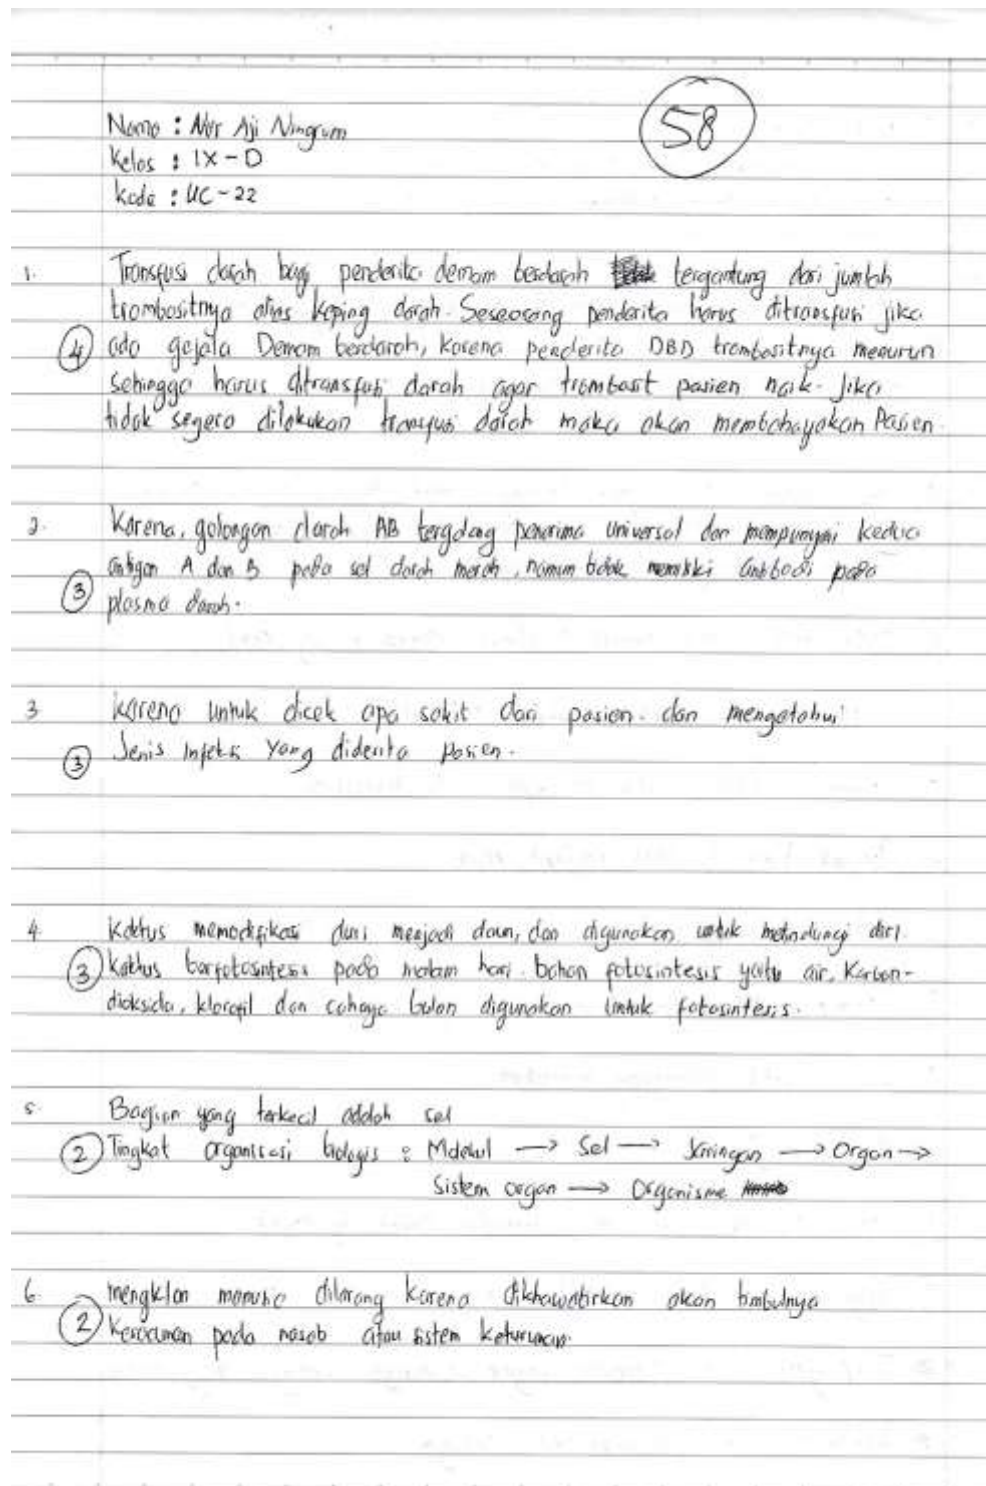 Nama : Nur Aji Ningrum
58
Kelas : IX - D
Kode : UC - 22
1. Transfusi darah bagi penderita demam berdarah tergantung dari jumlah
trombositnya atas keping darah. Seseorang penderita harus ditransfusi jika
4 ada gejala Demam berdarah, karena penderita DBD trombositnya menurun
sehingga harus ditransfusi darah agar trombosit pasien naik. Jika
tidak segera dilakukan transfusi darah maka akan membahayakan Pasien.
2. Karena, golongan darah AB tergolong penerima universal dan mempunyai kedua
antigen A dan B pada sel darah merah, namun tidak memiliki antibodi pada
3 plasma darah.
3 Karena untuk dicek apa sakit dari pasien. dan mengetahui
3 Jenis infeksi yang diderita pasien.
4. Kaktus memodifikasi duri menjadi daun, dan digunakan untuk melindungi diri.
3 Kaktus berfotosintesis pada malam hari. bahan fotosintesis yaitu air, Karbon-
dioksida, klorofil dan cahaya bulan digunakan untuk fotosintesis.
5. Bagian yang terkecil adalah sel
2 Tingkat organisasi biologis : Molekul → Sel → Jaringan → Organ →
Sistem organ → Organisme
6. mengklon manusia dilarang karena dikhawatirkan akan timbulnya
2 Keracunan pada nasab atau sistem keturunan.